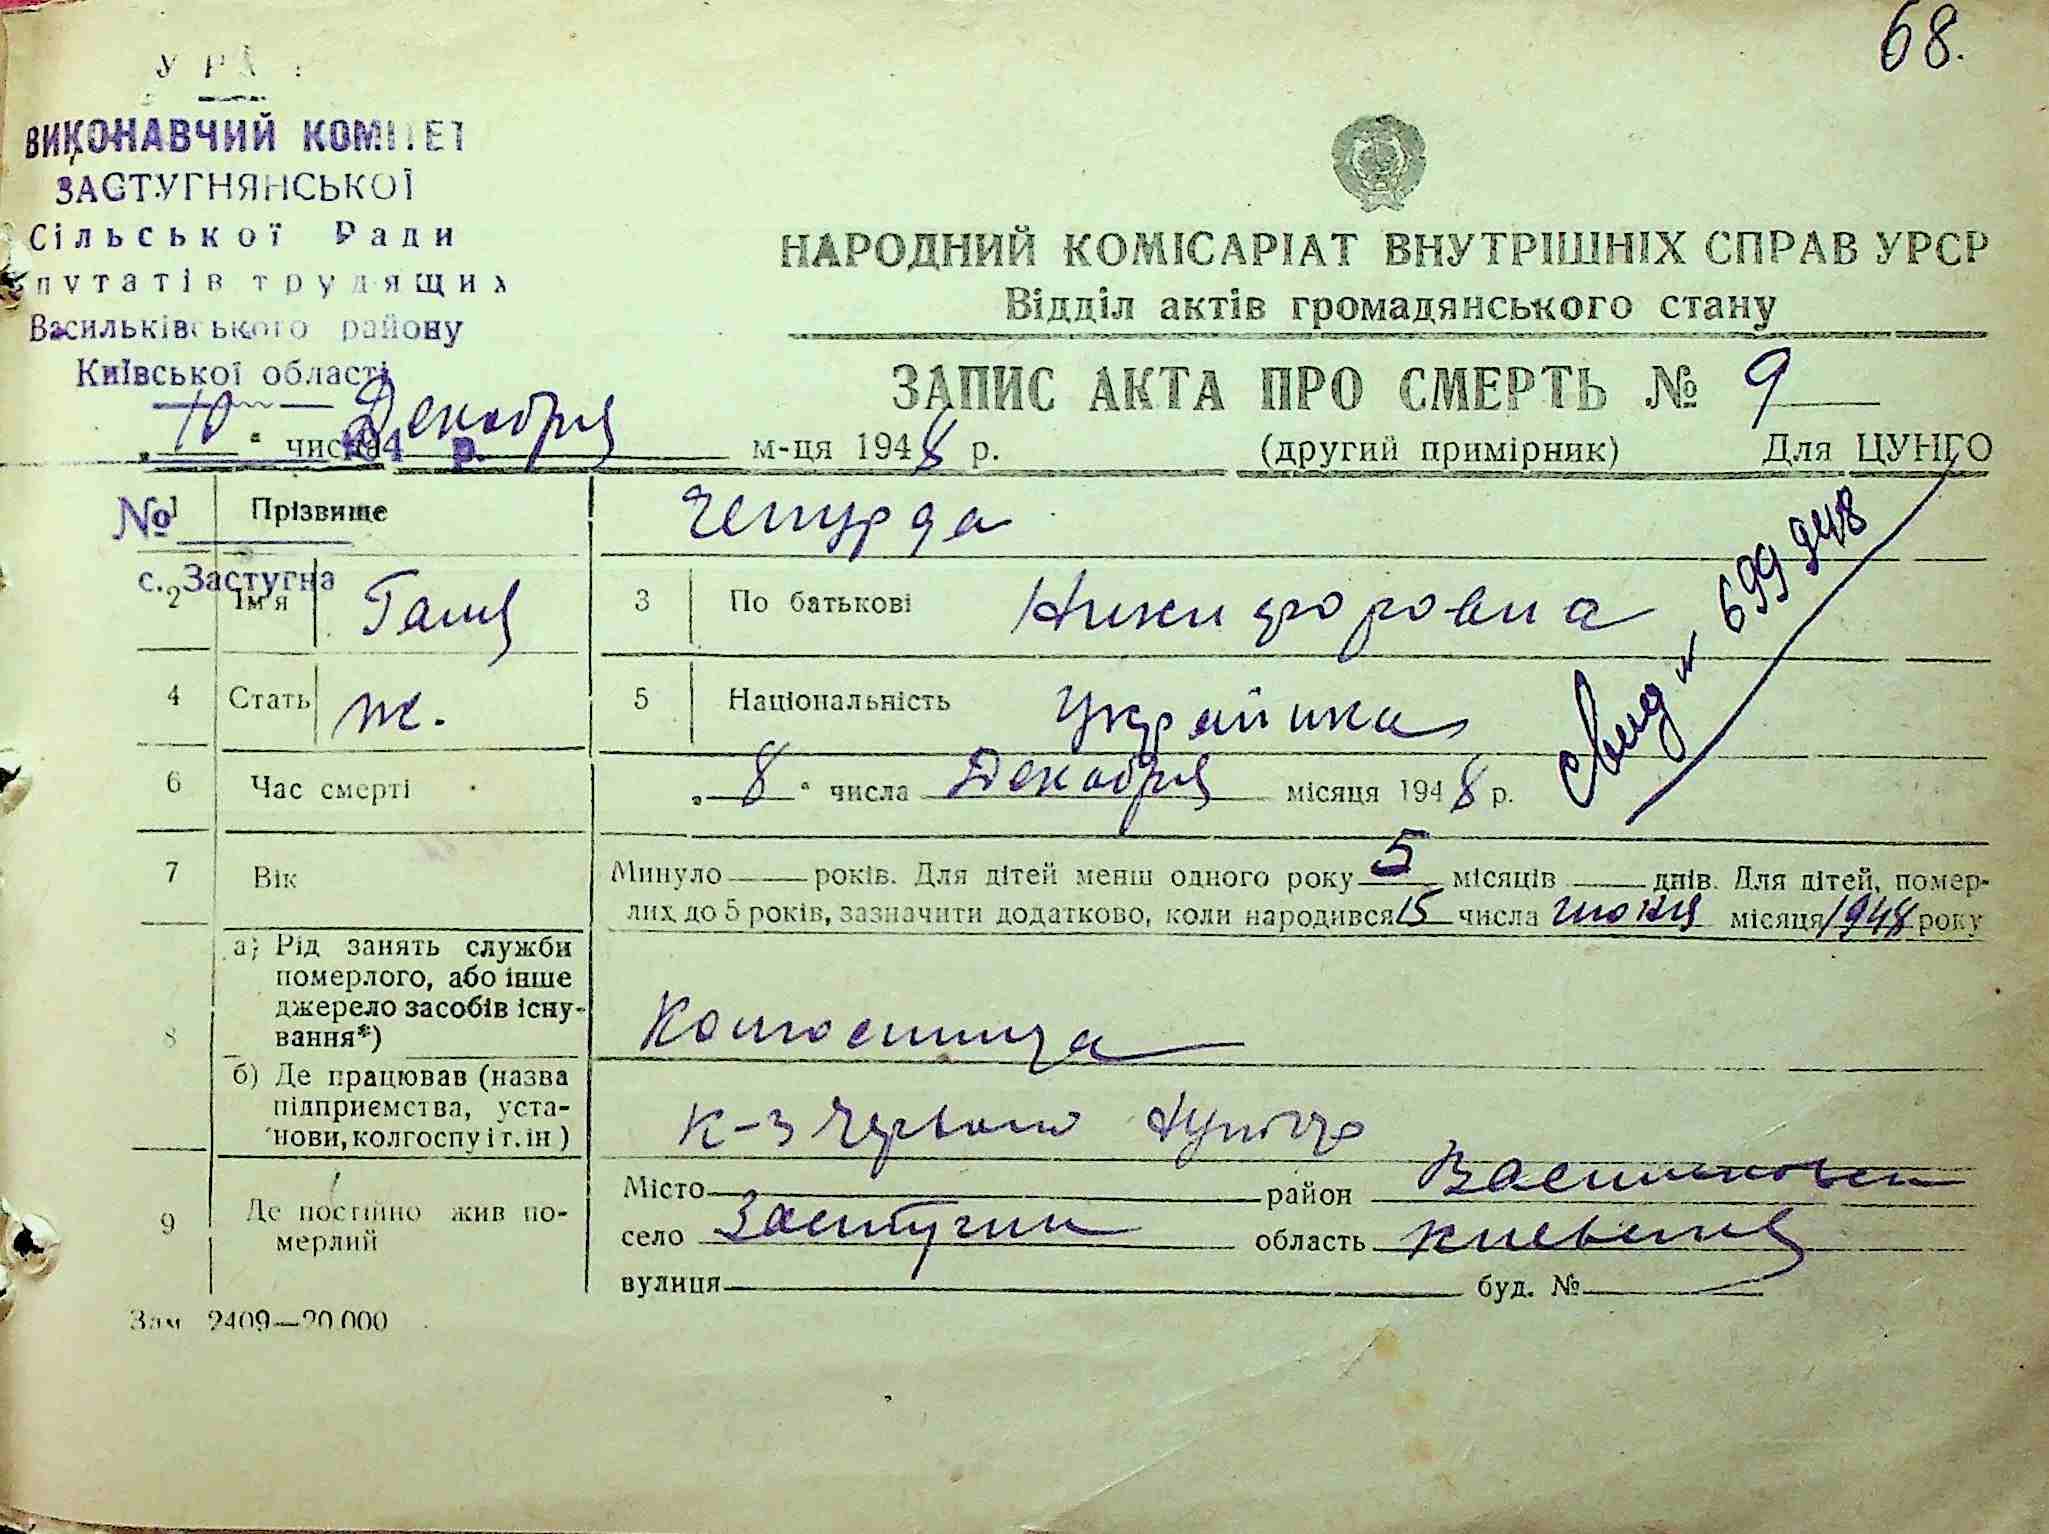 68.
УРСР
ВИКОНАВЧИЙ КОМІТЕТ
ЗАСТУГНЯНСЬКОЇ
Сільської Ради
депутатів трудящих
Васильківського району
Київської області
194 р.
№
с. Застугна
НАРОДНИЙ КОМІСАРІАТ ВНУТРІШНІХ СПРАВ УРСР
Відділ актів громадянського стану
ЗАПИС АКТА ПРО СМЕРТЬ № 9
„10“ числа Декабря м-ця 1948 р. (другий примірник) Для ЦУНГО
1 Прізвище Чепурда
2 Ім'я Галя 3 По батькові Никифоровна
4 Стать ж. 5 Національність Украінка
Свид № 699948
6 Час смерті „8“ числа Декабря місяця 1948 р.
7 Вік Минуло — років. Для дітей менш одного року 5 місяців — днів. Для дітей, помер-
лих до 5 років, зазначити додатково, коли народився 15 числа июля місяця 1948 року
8 а) Рід занять служби
померлого, або інше
джерело засобів існу-
вання*)
Колгоспница
б) Де працював (назва
підприємства, уста-
нови, колгоспу і т. ін)
к-з Червоно
9 Де постійно жив по-
мерлий
Місто район Васильковск
село Застугна область киевская
вулиця буд. №
Зам 2409—20.000